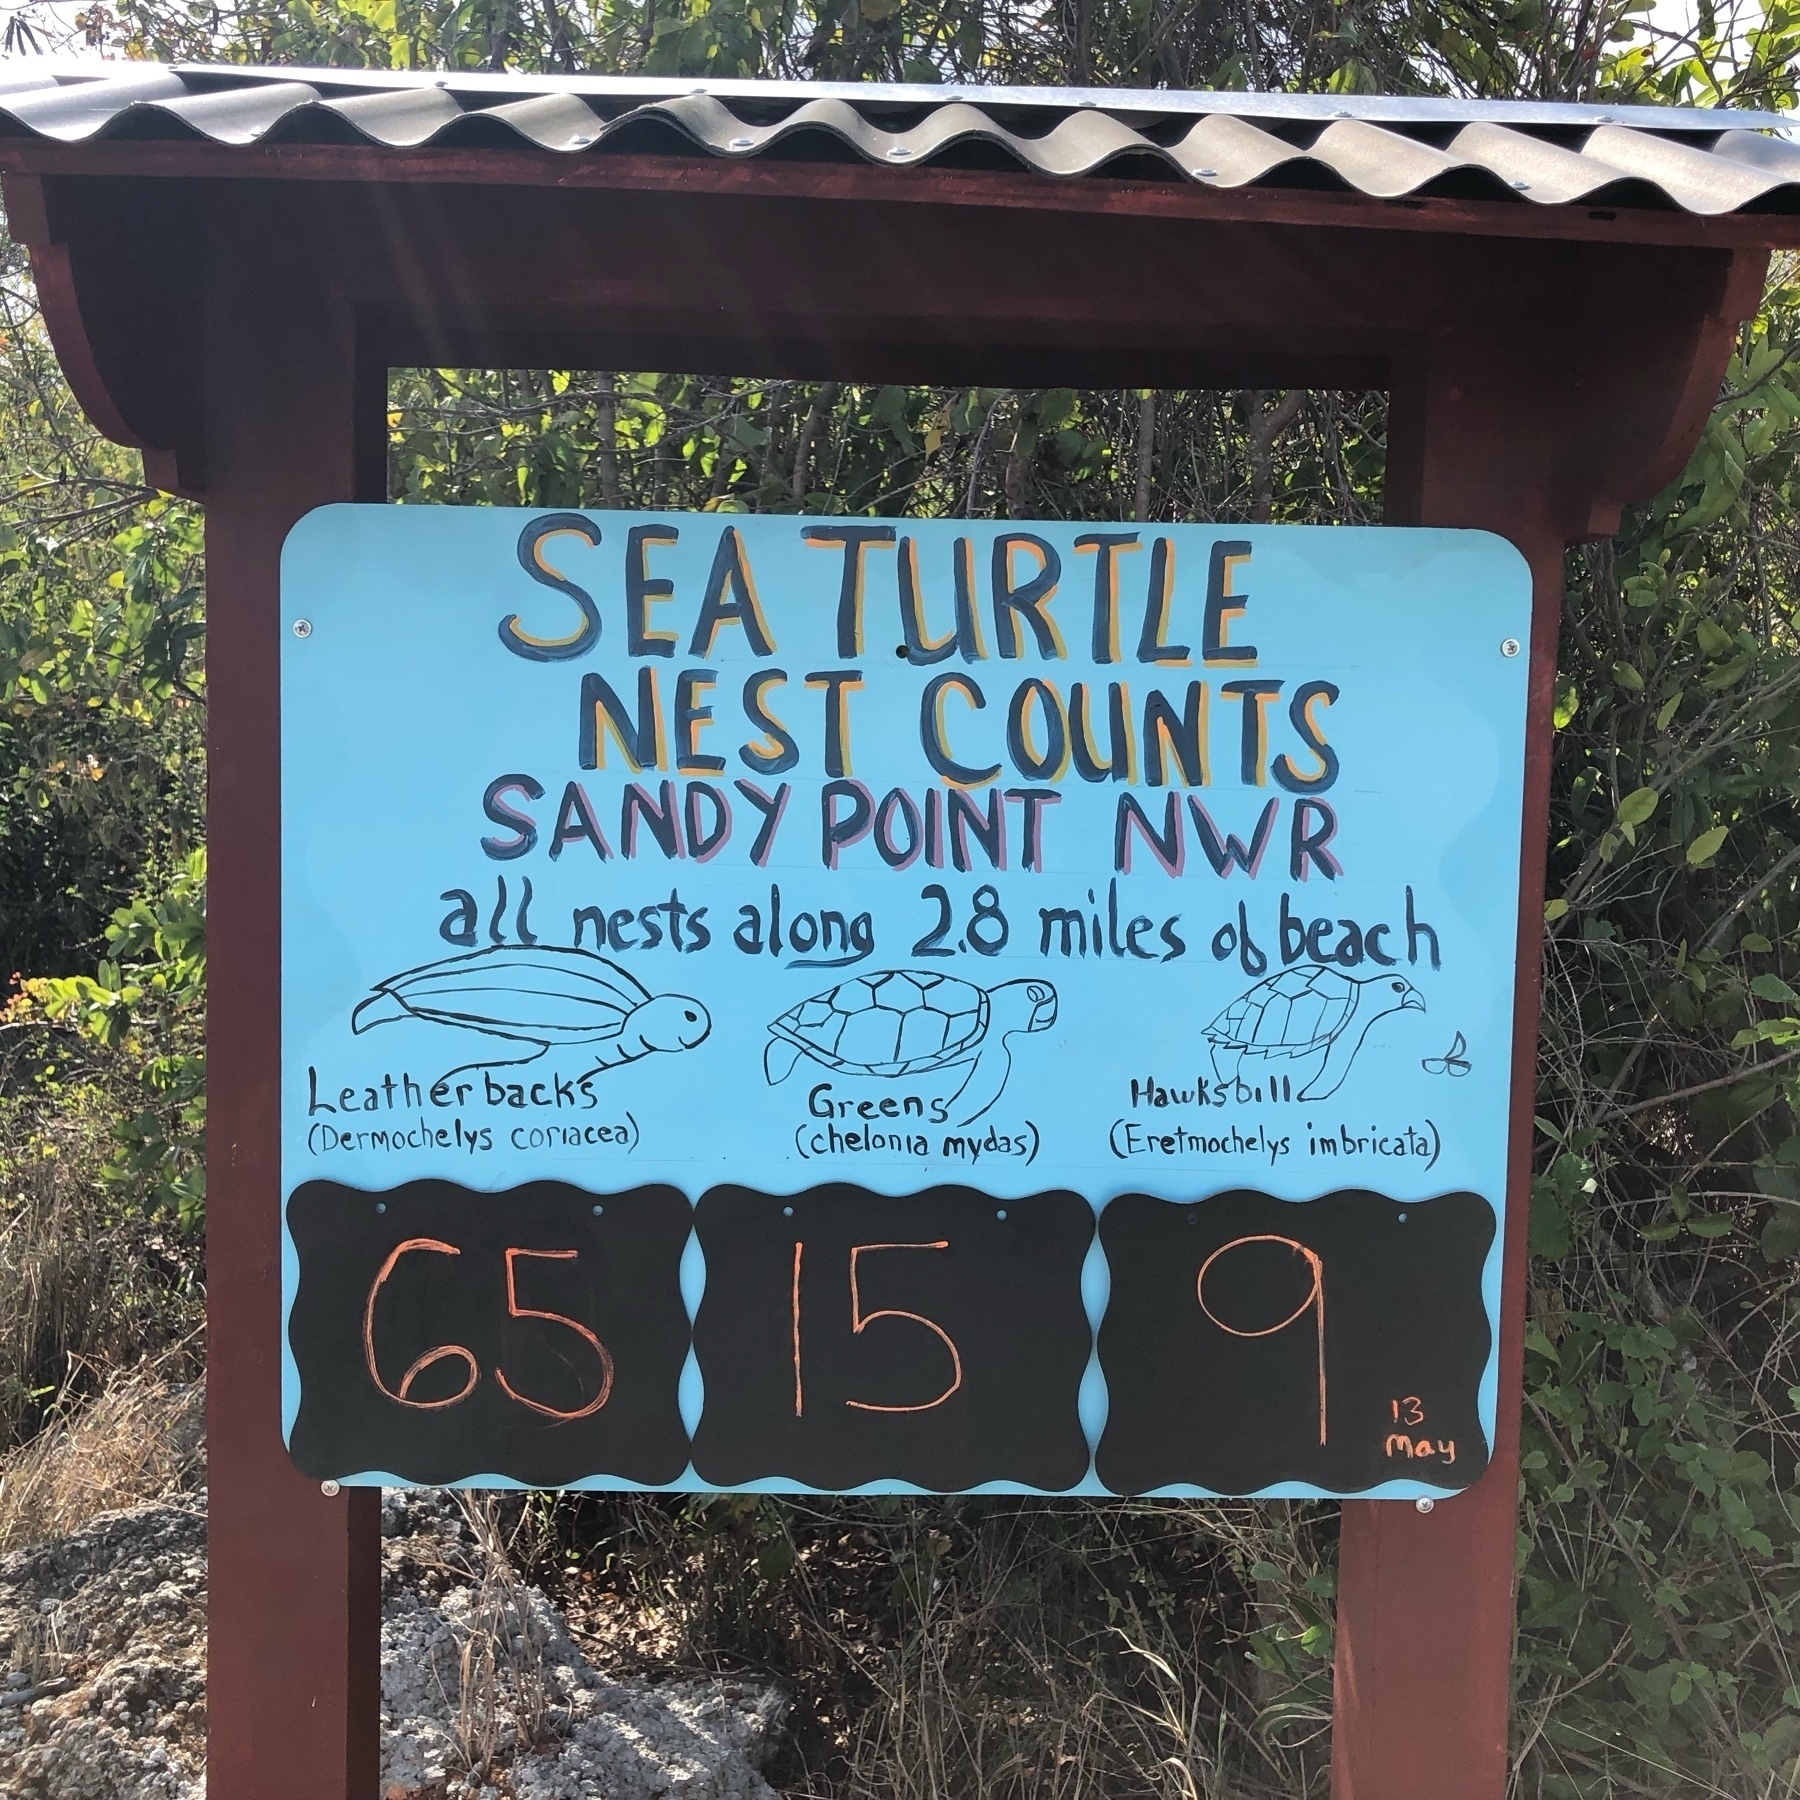 SEA TURTLE
NEST COUNTS
SANDY POINT NWR
all nests along 2.8 miles of beach
Leatherbacks
(Dermochelys coriacea)
Greens
(chelonia mydas)
Hawksbill
(Eretmochelys imbricata)
65
15
9
13
May